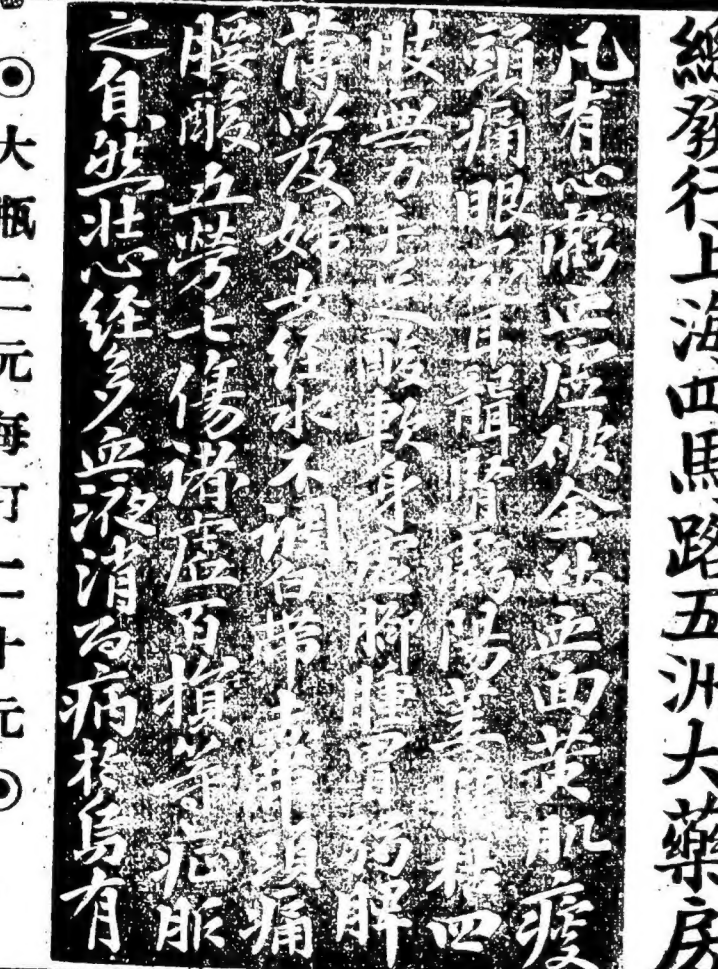 總發行上海四馬路五洲大藥房
凡有心虧血虛破金吐血面黃肌瘦
頭痛眼花耳聾腎虧陽萎精枯四
肢無力手足酸軟身虛脚腫胃弱脾
薄以及婦女經水不調白帶赤帶頭痛
腰酸五勞七傷諸虛百損等症服
之自然壯心經多血液消百病於烏有
◉大瓶二元每打二十元◉